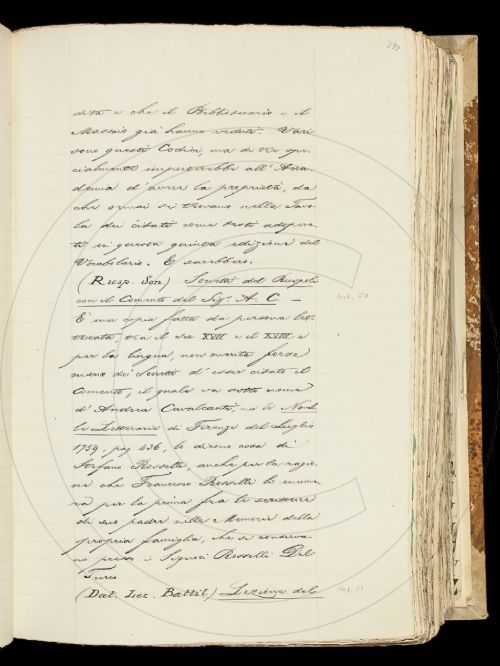 dita e che il Bibliotecario e il
Massaio già hanno veduti. Vari
sono questi Codici, ma di tre spe-
cialmente importerebbe all'Acca-
demia d'avere la proprietà, da
che ormai si trovano nella Tavo-
la dei citati come testi adopera-
ti in questa quinta edizione del
Vocabolario. E sarebbero.
(Rusp. Son.) Sonetti del Ruspoli
con il Comento del Sig.r A. C. —
È una copia fatta da persona let-
terata, tra il sec XVII e il XVIII, e
per la lingua, non merita forse
meno dei Sonetti d'esser citato il
Comento, il quale va sotto nome
d'Andrea Cavalcanti, ma le Novel-
le Letterarie di Firenze del Luglio
1759, pag. 436, lo dicono cosa di
Stefano Rosselli, anche per la ragio-
ne che Francesco Rosselli lo enume-
ra per la prima fra le scritture
di suo padre nelle Memorie della
propria famiglia, che si conserva-
no presso i Signori Rosselli Del
Turco
(Dat. Lez. Battil.) Lezione del